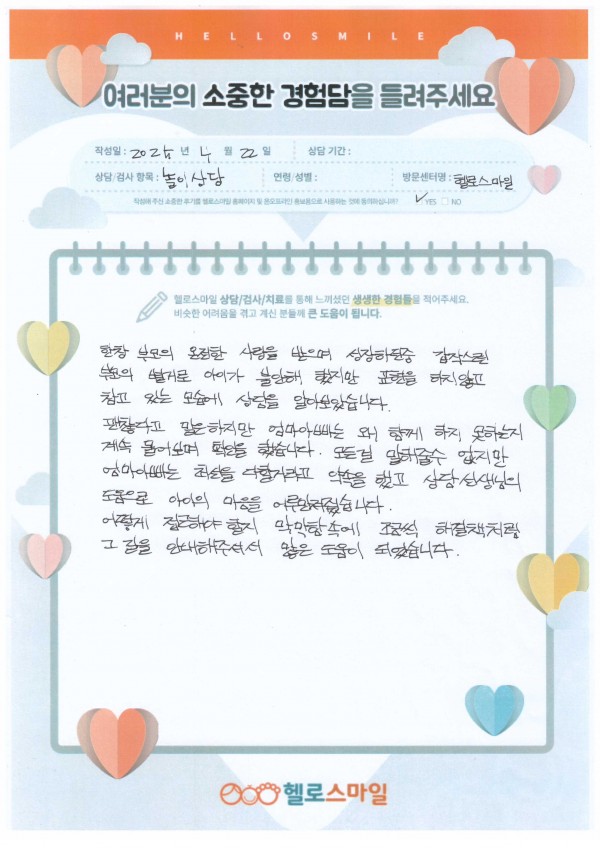 HELLOSMILE
여러분의 소중한 경험담을 들려주세요
작성일 : 2025 년 4 월 22 일 상담 기간 :
상담/검사 항목 : 놀이상담 연령/성별 : 방문센터명 : 헬로스마일
작성해 주신 소중한 후기를 헬로스마일 홈페이지 및 온오프라인 홍보용으로 사용하는 것에 동의하십니까? ✓ YES □ NO
헬로스마일 상담/검사/치료를 통해 느끼셨던 생생한 경험들을 적어주세요.
비슷한 어려움을 겪고 계신 분들께 큰 도움이 됩니다.
한창 부모의 온전한 사랑을 받으며 성장하던중 갑작스런
부모의 별거로 아이가 불안해 했지만 표현을 하지않고
참고 있는 모습에 상담을 알아보았습니다.
괜찮다고 말은하지만 엄마아빠는 왜 함께 하지 못하는지
계속 물어보며 확인을 했습니다. 모든걸 말해줄수 없지만
엄마아빠는 최선을 다할거라고 약속을 했고 상담선생님의
도움으로 아이의 마음을 어루만져줬습니다.
어떻게 접근해야 할지 막막함속에 조금씩 해결책처럼
그 길을 안내해주셔서 많은 도움이 되었습니다.
헬로스마일